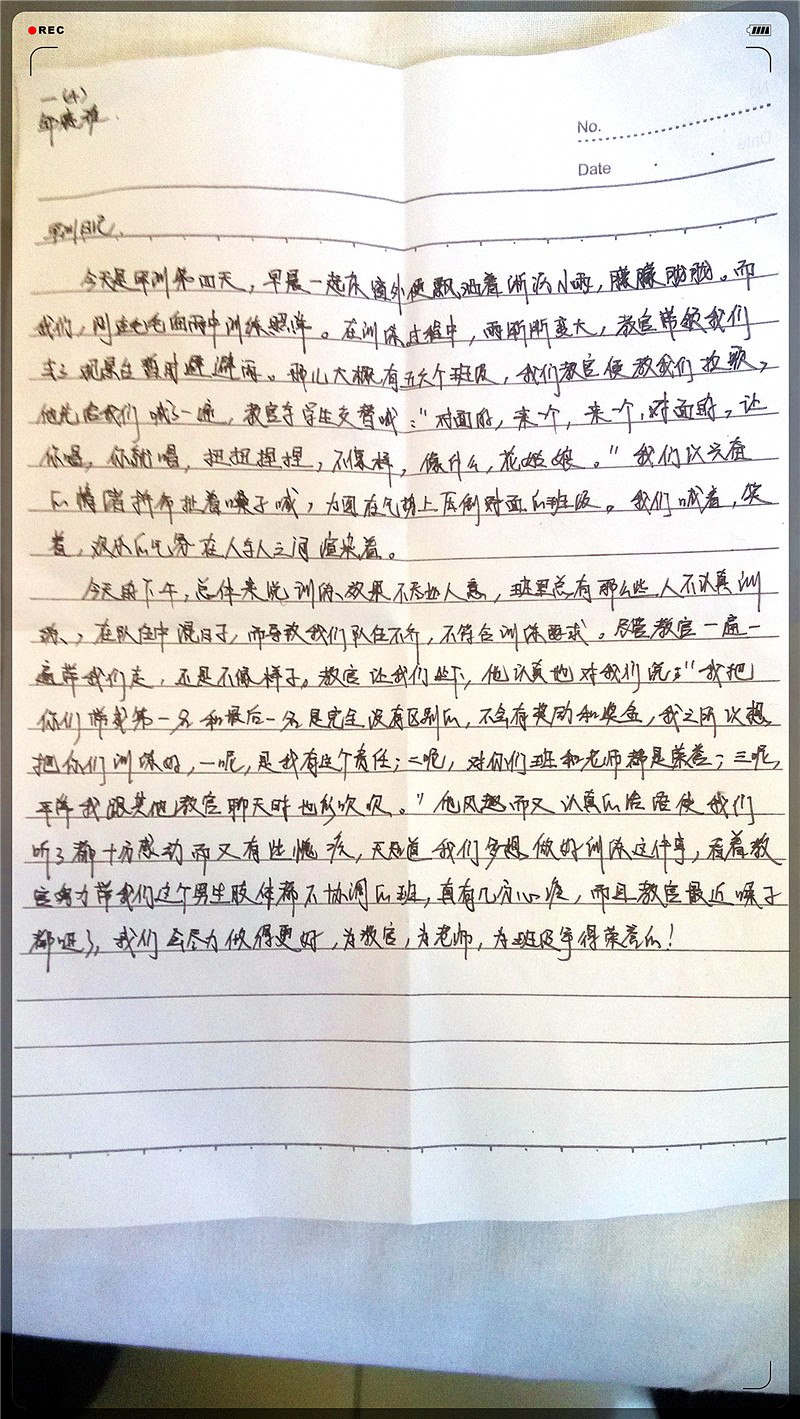 REC
一(4)
No.
Date
军训日记.
今天是军训第四天，早晨一起床窗外便飘洒着淅沥小雨，朦朦胧胧。而
我们，则在毛毛面雨中训练照常。在训练过程中，雨渐渐变大，教官带领我们
去了观景台暂时躲避雨。那儿大概有五六个班级，我们教官便教我们拉歌，
他先给我们喊了一遍，教官与学生交替喊："对面的，来一个，来一个，对面的，让
你唱，你就唱，扭扭捏捏，不像样，像什么，花姑娘。"我们以兴奋
的情绪拼命扯着嗓子喊，为图在气势上压倒对面的班级。我们喊着，笑
着，欢乐的气氛在人与人之间渲染着。
今天的下午，总体来说训练效果不尽如人意，班里总有那么些人不认真训
练，在队伍中混日子，而导致我们队伍不齐，不符合训练要求。尽管教官一遍一
遍带我们走，还是不像样子。教官让我们坐下，他认真地对我们说："我把
你们带成第一名和最后一名是完全没有区别的，不会有奖励和奖金，我之所以想
把你们训练好，一呢，是我有这个责任；二呢，对你们班和老师都是荣誉；三呢，
平降我跟其他教官聊天时也能吹吹。"他风趣而又认真的话语使我们
听了都十分感动而又有些愧疚，天知道我们多想做好训练这件事，看着教
官努力带我们这个男生肢体都不协调的班，真有几分心疼，而且教官最近嗓子
都哑了，我们会尽力做得更好，为教官，为老师，为班级争得荣誉的！